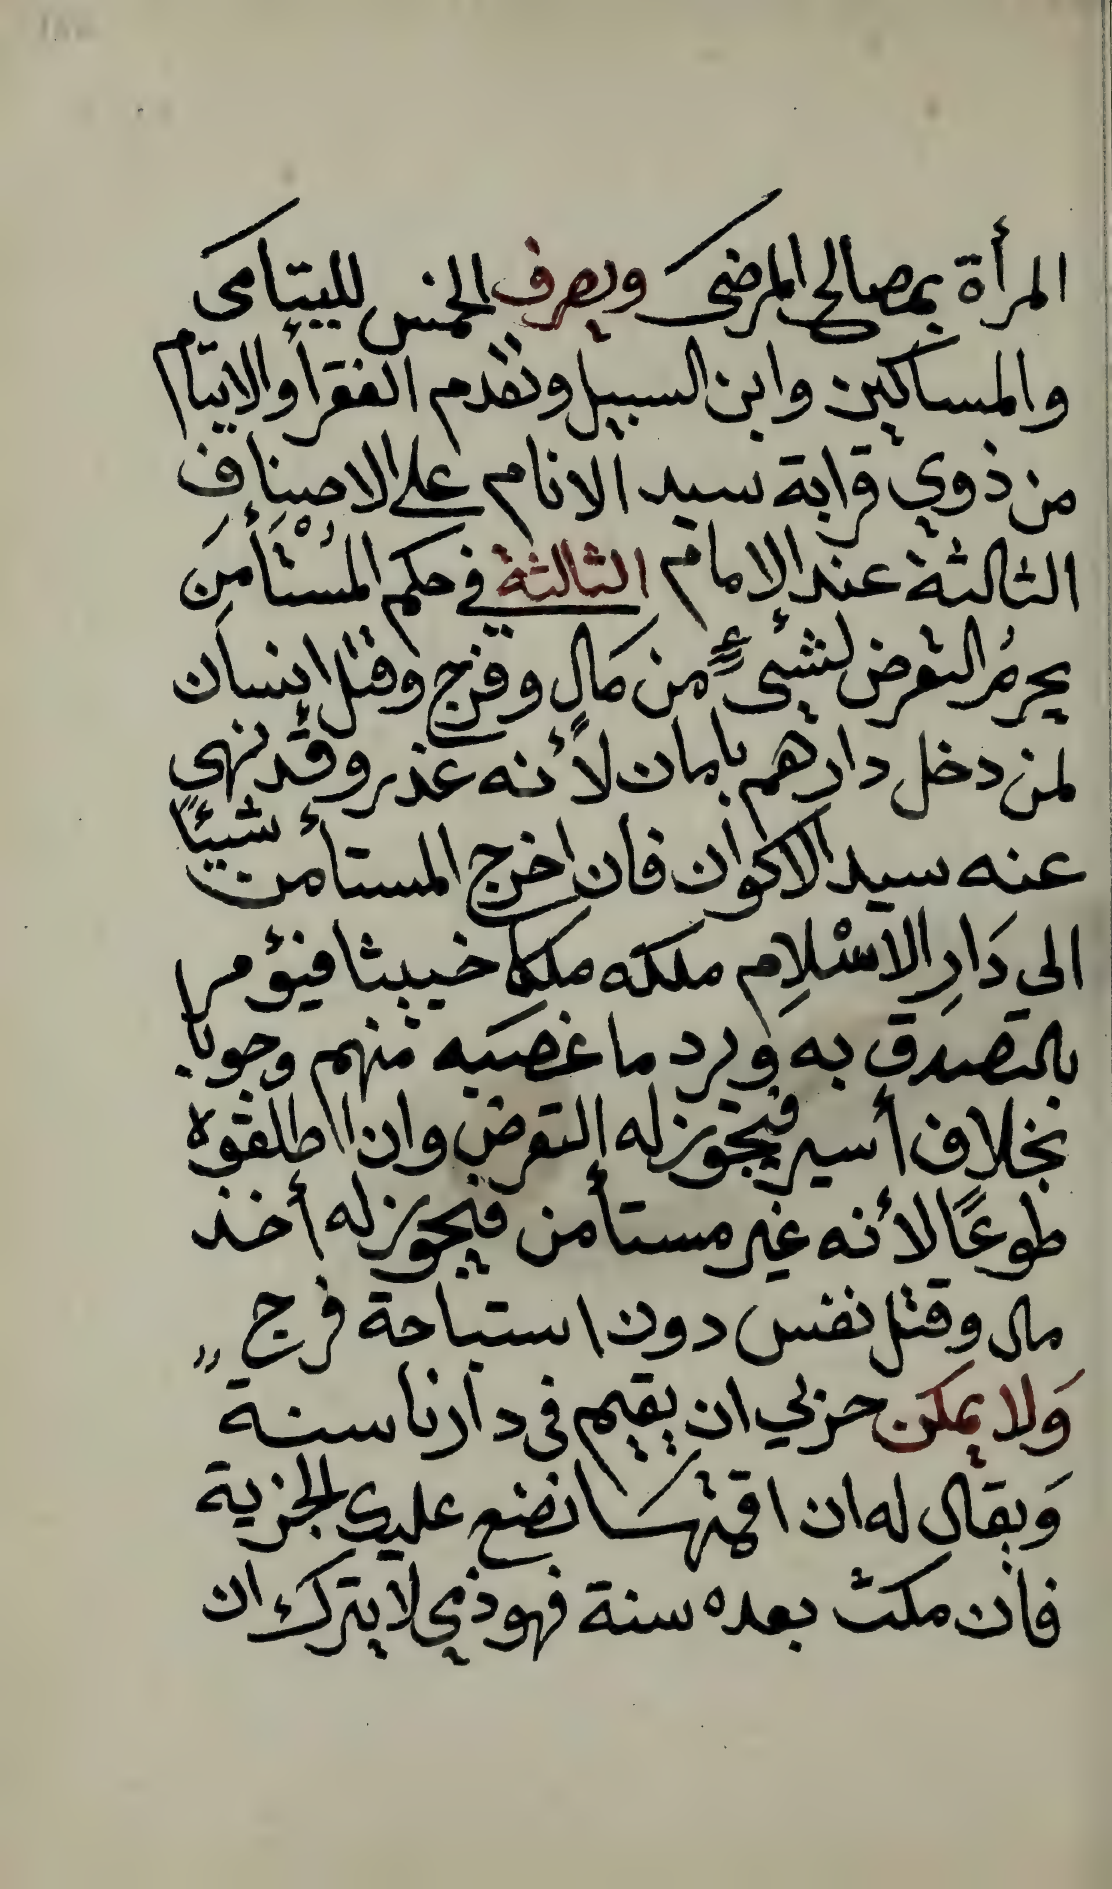 المرأة بمصالح المرضى ويصرف الخمس لليتامى
والمساكين وابن السبيل وتقدم الفقرأ والايتام
من ذوي قرابة سيد الانام على الاصناف
الثالثة عند الامام الثالثة في حكم المُسْتَأمَن
يحرمُ التعرض لشيىءٍ من مَال وفرج وقتل انسان
لمن دخل دارهم بامان لأنه عذر وقد نهى
عنه سيد الاكوان فان اخرج المستأمن شيئًا
الى دَارِ الاسْلامِ ملكه ملكا خبيثا فيؤمر
بالتصدق به ويرد ما غصبه منهم وجوبا
بخلاف أسير فيجوز له التعرض وان اطلقوه
طوعًا لأنه غير مستأمن فيجوز له أخذ
مال وقتل نفس دون استباحة فرج
وَلا يمكن حربي ان يقيم في دارنا سنة
وَيقال له ان اقمتها نضع عليك الجزية
فان مكث بعده سنة فهو ذمي لا يترك ان